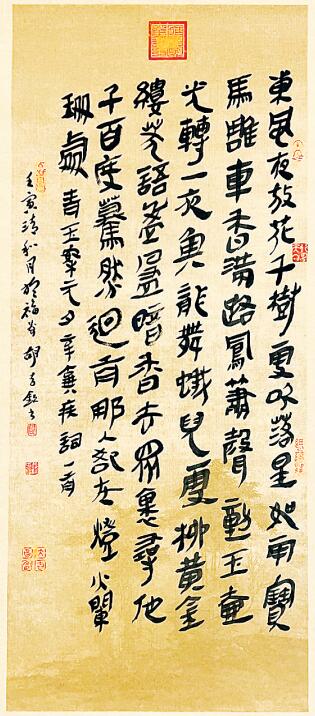 東風夜放花千樹更吹落星如雨寶
馬雕車香滿路鳳簫聲動玉壺
光轉一夜魚龍舞蛾兒雪柳黃金
縷笑語盈盈暗香去眾裏尋他
千百度驀然迴首那人卻在燈火闌
珊處 青玉案元夕 辛棄疾詞一首
壬寅清和月於福 胡